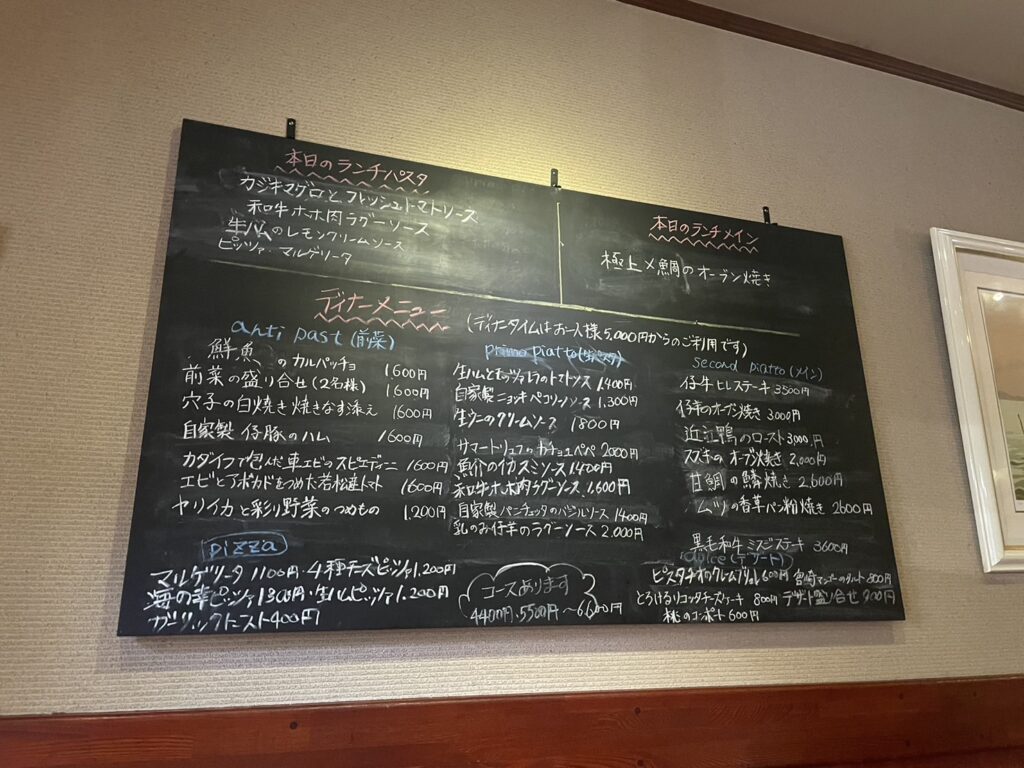 本日のランチパスタ
カジキマグロとフレッシュトマトソース
和牛ホホ肉ラグーソース
生ハムのレモンクリームソース
ピッツァ・マルゲリータ
本日のランチメイン
極上〆鯛のオーブン焼き
ディナーメニュー
(ディナータイムはお一人様5,000円からのご利用です)
anti past(前菜)
鮮魚のカルパッチョ 1600円
前菜の盛り合せ(2名様) 1600円
穴子の白焼き焼きなす添え 1600円
自家製 仔豚のハム 1600円
カダイフで包んだ車エビのスピエディーニ 1600円
エビとアボカドをつめた若松産トマト 1600円
ヤリイカと彩り野菜のつめもの 1,200円
primo piatto(パスタ)
生ハムとモッツァレラのトマトソース 1,400円
自家製ニョッキ ペコリーノソース 1,300円
生ウニのクリームソース 1800円
サマートリュフのカチョエペペ 2000円
魚介のイカスミソース 1400円
和牛ホホ肉ラグーソース 1,600円
自家製パンチェッタのバジルソース 1400円
乳のみ仔羊のラグーソース 2,000円
second piatto(メイン)
仔牛ヒレステーキ 3500円
仔羊のオーブン焼き 3000円
近江鴨のロースト 3000円
スズキのオーブン焼き 2,000円
甘鯛の鱗焼き 2,600円
ムツの香草パン粉焼き 2600円
黒毛和牛 ミスジステーキ 3600円
pizza
マルゲリータ 1100円・4種チーズピッツァ 1,200円
海の幸ピッツァ 1300円・生ハムピッツァ 1,200円
ガーリックトースト 400円
コースあります
4400円・5500円〜6600円
dolce(デザート)
ピスタチオのクレームブリュレ 600円 宮崎マンゴーのタルト 800円
とろけるリコッタチーズケーキ 800円 デザート盛り合せ 900円
桃のコンポート 600円